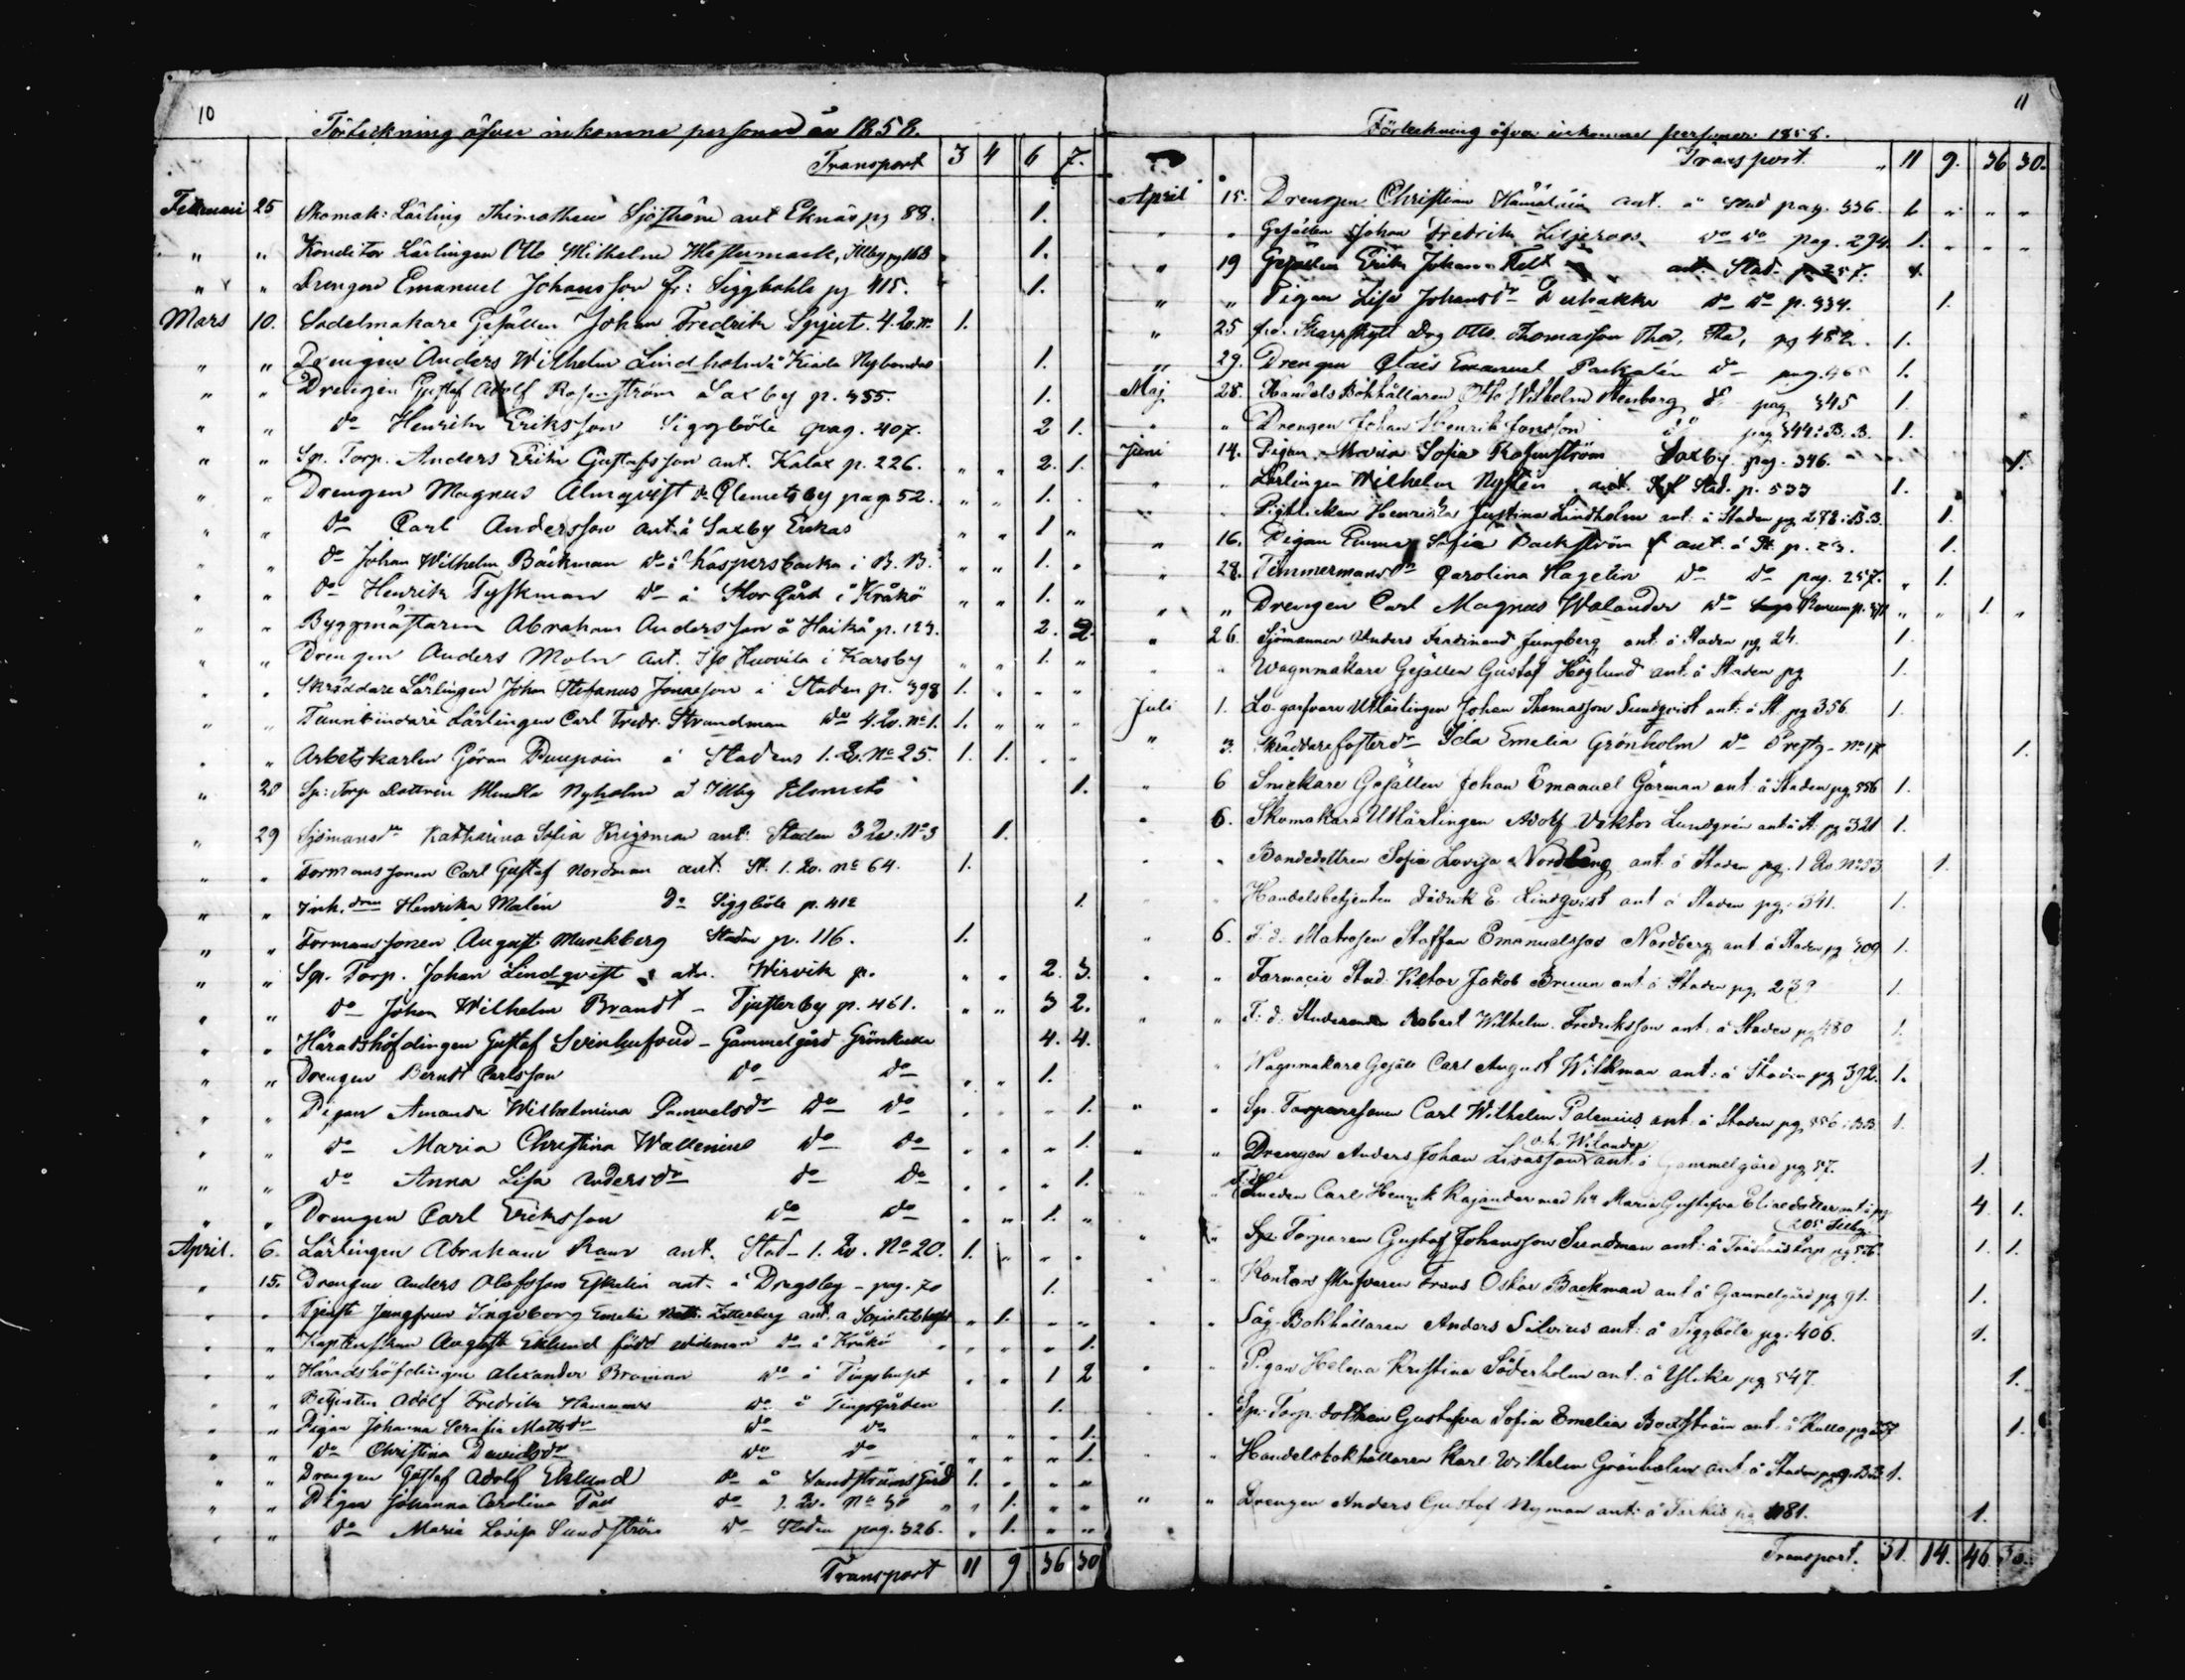 10
Förteckning öfver inkomne personer år 1858.
Transport 3 4 6 7.
Februari 25 Skomak: Lärling Thimotheus Sjöström ant Eknäs pg 88. 1.
" " Konditor Lärlingen Otto Wilhelm Westermark, Illby pg 163 1.
" " Drengen Emanuel Johansson Fr: Siggbohle pg 415. 1.
Mars 10. Sadelmakare Gesällen Johan Fredrik 4. Qv. No 1.
" " Drengen Anders Wilhelm Lindholm å Kiala Nybondas 1.
" " Drengen Gustaf Adolf Rosenström Saxby p. 355. 1.
" " do Henrik Eriksson Siggböle pag. 407. 2 1.
" " Sp. Torp. Anders Erik Gustafsson ant. Kalax p. 226. " " 2. 1.
" " Drengen Magnus Almqvist do Clemetsby pag. 52. " " 1.
" " do Carl Andersson ant. å Saxby Erikas " " 1 "
" " do Johan Wilhelm Bäckman do å Kaspersbacka i B. B. " " 1. "
" " do Henrik Tyskman do å Stor Gård i Kråkö " " 1. "
" " Byggmästaren Abraham Andersson å Haikå p. 123. 2. 2.
" " Drengen Anders Moln ant. Huovila i Karsby " " 1. "
" " Skräddare Lärlingen Johan Stefanus Jonasson i Staden p. 398 1. " " "
" " Tunnbindare Lärlingen Carl Fredr. Strandman do 4. Qv. No 1. 1. " " "
" " Arbetskarlen Göran å Stadens 1. Qv. No 25. 1. 1. " "
" 28 Sp: Torp Dottren Nyholm å Illby Klemets 1.
" 29 Sjömansdn Katharina Sofia Krigsman ant: Staden 3 Qv. No 3 1.
" " Formanssonen Carl Gustaf Nordman ant. St. 1. Qv. No 64. 1.
" " Inh. dren Henrika Malin do Siggböle p. 412 1.
" " Formanssonen August Munkberg Staden p. 116. 1.
" " Sp. Torp. Johan Lindqvist Wirvik p. " " 2. 3.
" " do Johan Wilhelm Brandt - Tjusterby p. 461. " " 3 2.
" " Häradshöfdingen Gustaf Svinhufvud - Gammelgård Grönkulla 4. 4.
" " Drengen Berndt Carlsson do do " " 1.
" " Pigan Amanda Wilhelmina Samuelsdr do do " " " 1.
" " do Maria Christina Wallenius do do " " " 1.
" " do Anna Lisa Andersdr do do " " " 1.
" " Drengen Carl Eriksson do do " " 1. "
April. 6. Lärlingen Abraham Ranv ant. Stad - 1. Qv. No 20. 1. " " "
" 15. Drengen Anders Olofsson Eskelin ant. å Dregsby - pag. 70 1.
" " Tjenste Jungfrun Ingeborg Emelie Zitterberg ant. a " 1. " "
" " Kaptenskan August Eklund född Wideman do å Kråkö " " " 1.
" " Häradshöfdingen Alexander do å Tingshuset " " 1 2
" " Betjenten Adolf Fredrik do å Tingsgården 1.
" " Pigan Johanna Serafia Mattsdr do do " " " 1.
" " do Christina Davidsdr do do " " " 1.
" " Drengen Gustaf Adolf Eklund do å Sandströms Gård 1. " " "
" " Pigan Johanna Carolina do 1. Qv. No 30 " 1. " "
" " do Maria Lovisa Sundström do Staden pag. 326. " 1. " "
Transport 11 9 36 30
11
Förteckning öfver inkomne personer 1858.
Transport. " 11 9. 36 30.
April 15. Drengen Christian ant. å Stad pag. 336. 1 " " "
" " Gesällen Johan Fredrik Liljeroos do do pag. 294. 1. " " "
" 19 Gesällen Erik Johan Felt ant. Stad. p. 257. 1.
" " Pigan Lisa Johansdr do do p. 334. 1.
" 25 f.d. Skarpskytt Dog Otto Thomasson Sta, pg 452. 1.
" 29. Drengen Claës Emanuel do pag. 465 1.
Maj 28. Handels Bokhållaren Otto Wilhelm Stenberg do pag 345 1.
" " Drengen Johan Henrik Jonsson pag 344: B. B. 1.
Juni 14. Pigan Maria Sofia Rosenström Saxby pag. 346. 1.
" " Lärlingen Wilhelm Nystén ant. Stad. p. 533 1.
" " Pigflickan Henrika Justina Lindholm ant: å Staden pg 278: B. B. 1.
" 16. Pigan Emma Sofia Backström ant. å St p. 23. 1.
" 28. Timmermansdn Carolina Hagelin do do pag. 257. " 1.
" " Drengen Carl Magnus Wolander do " " 1. "
" 26. Sjömannen Anders Ferdinand Ljungberg ant: å Staden pg 24. 1.
" " Wagnmakare Gesällen Gustaf Höglund ant: å Staden pg 1.
Juli 1. Lo-garfvare Utlärlingen Johan Thomasson Sundqvist ant: å St pg 356. 1.
" 3. Skräddarefosterdr Ida Emelia Grönholm do Prestg- No 17 1.
" 6 Snickare Gesällen Johan Emanuel Görman ant: å Staden pg 556 1.
" 6. Skomakare Utlärlingen Adolf Viktor Lundgrén ant å St. pg 321 1.
" " Bondedottren Sofia Lovisa Nordberg ant: å Staden pg. 1 Qv No 53 1.
" " Handelsbetjenten Didrik E. Lindqvist ant å Staden pg. 341. 1.
" 6. F. d: Matrosen Staffan Emanuelsson Nordberg ant å Staden pg 309 1.
" " Farmacie Stud. Viktor Jakob Bruun ant å Staden pg 239 1.
" " F: d: Studeranden Robert Wilhelm Fredriksson ant: å Staden pg 480 1.
" " Wagnmakare Gesäll Carl August Wilkman ant: å Staden pg 392. 1.
" " Sp. Torparesonen Carl Wilhelm Polenius ant: å Staden pg. 556: BB. 1.
o. h. Wilander
" " Drengen Anders Johan Lisasson ant: å Gammelgård pg 57. 1.
" " Smeden Carl Henrik Rajander med hu Maria Gustafva Eliaedotter ant: å pg 205 Illby 4. 1.
" " Sp. Torparen Gustaf Johansson Sundman ant: å pg 526. 1. 1.
" " Kontors skrifvaren Frans Oskar Backman ant å Gammelgård pg 91. 1.
" " Såg-Bokhållaren Anders Silvius ant: å Siggböle pg: 406. 1.
" " Pigan Helena Kristina Söderholm ant: å Ylike pg 547. 1.
" " Sp: Torp. dottren Gustafva Sofia Emelia Boström ant: å Kullo pg 1.
" " Handelsbokhållaren Karl Wilhelm Grönholm ant å Staden pg B.B. 1.
" " Drengen Anders Gustaf Nyman ant: å Torkis pg 1181. 1.
Transport. 31. 14. 46. 30.